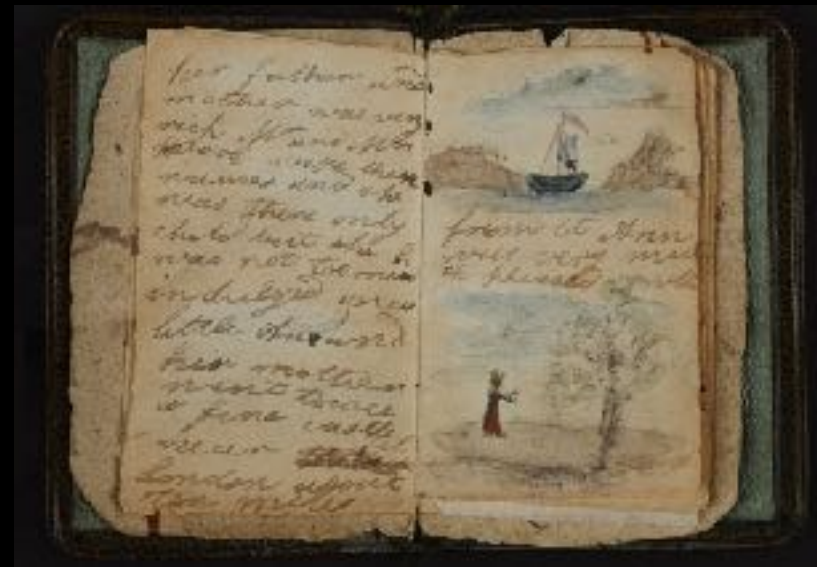 her father and
mother was very
rich Mr and Mrs
Wood were their
names and she
was there only
child but she
was not to mea
indulged once
little Ann and
her mother
went to see
a fine castle
near
London about
ten miles
from it Ann
was very mu
pleased